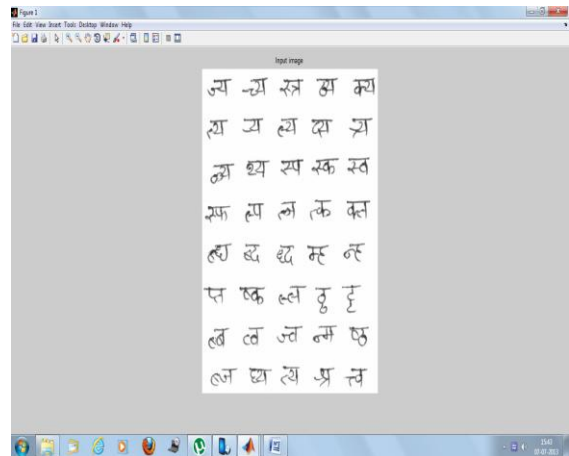 Figure 1
File Edit View Insert Tools Desktop Window Help
Input image
ज्य च्य स्त्र व्य क्य
त्य ज्य ल्य
थ्य स्प स्क स्व
स्फ ल्प त्न त्क क्त
ब्द द्ध म्ह न्ह
प्त ष्क ल्ल ठ्ठ ट्ट
ल्ब त्व ज्व न्म ष्ठ
ल्ज घ्य त्य प्र त्त्व
15:43
07-07-2013